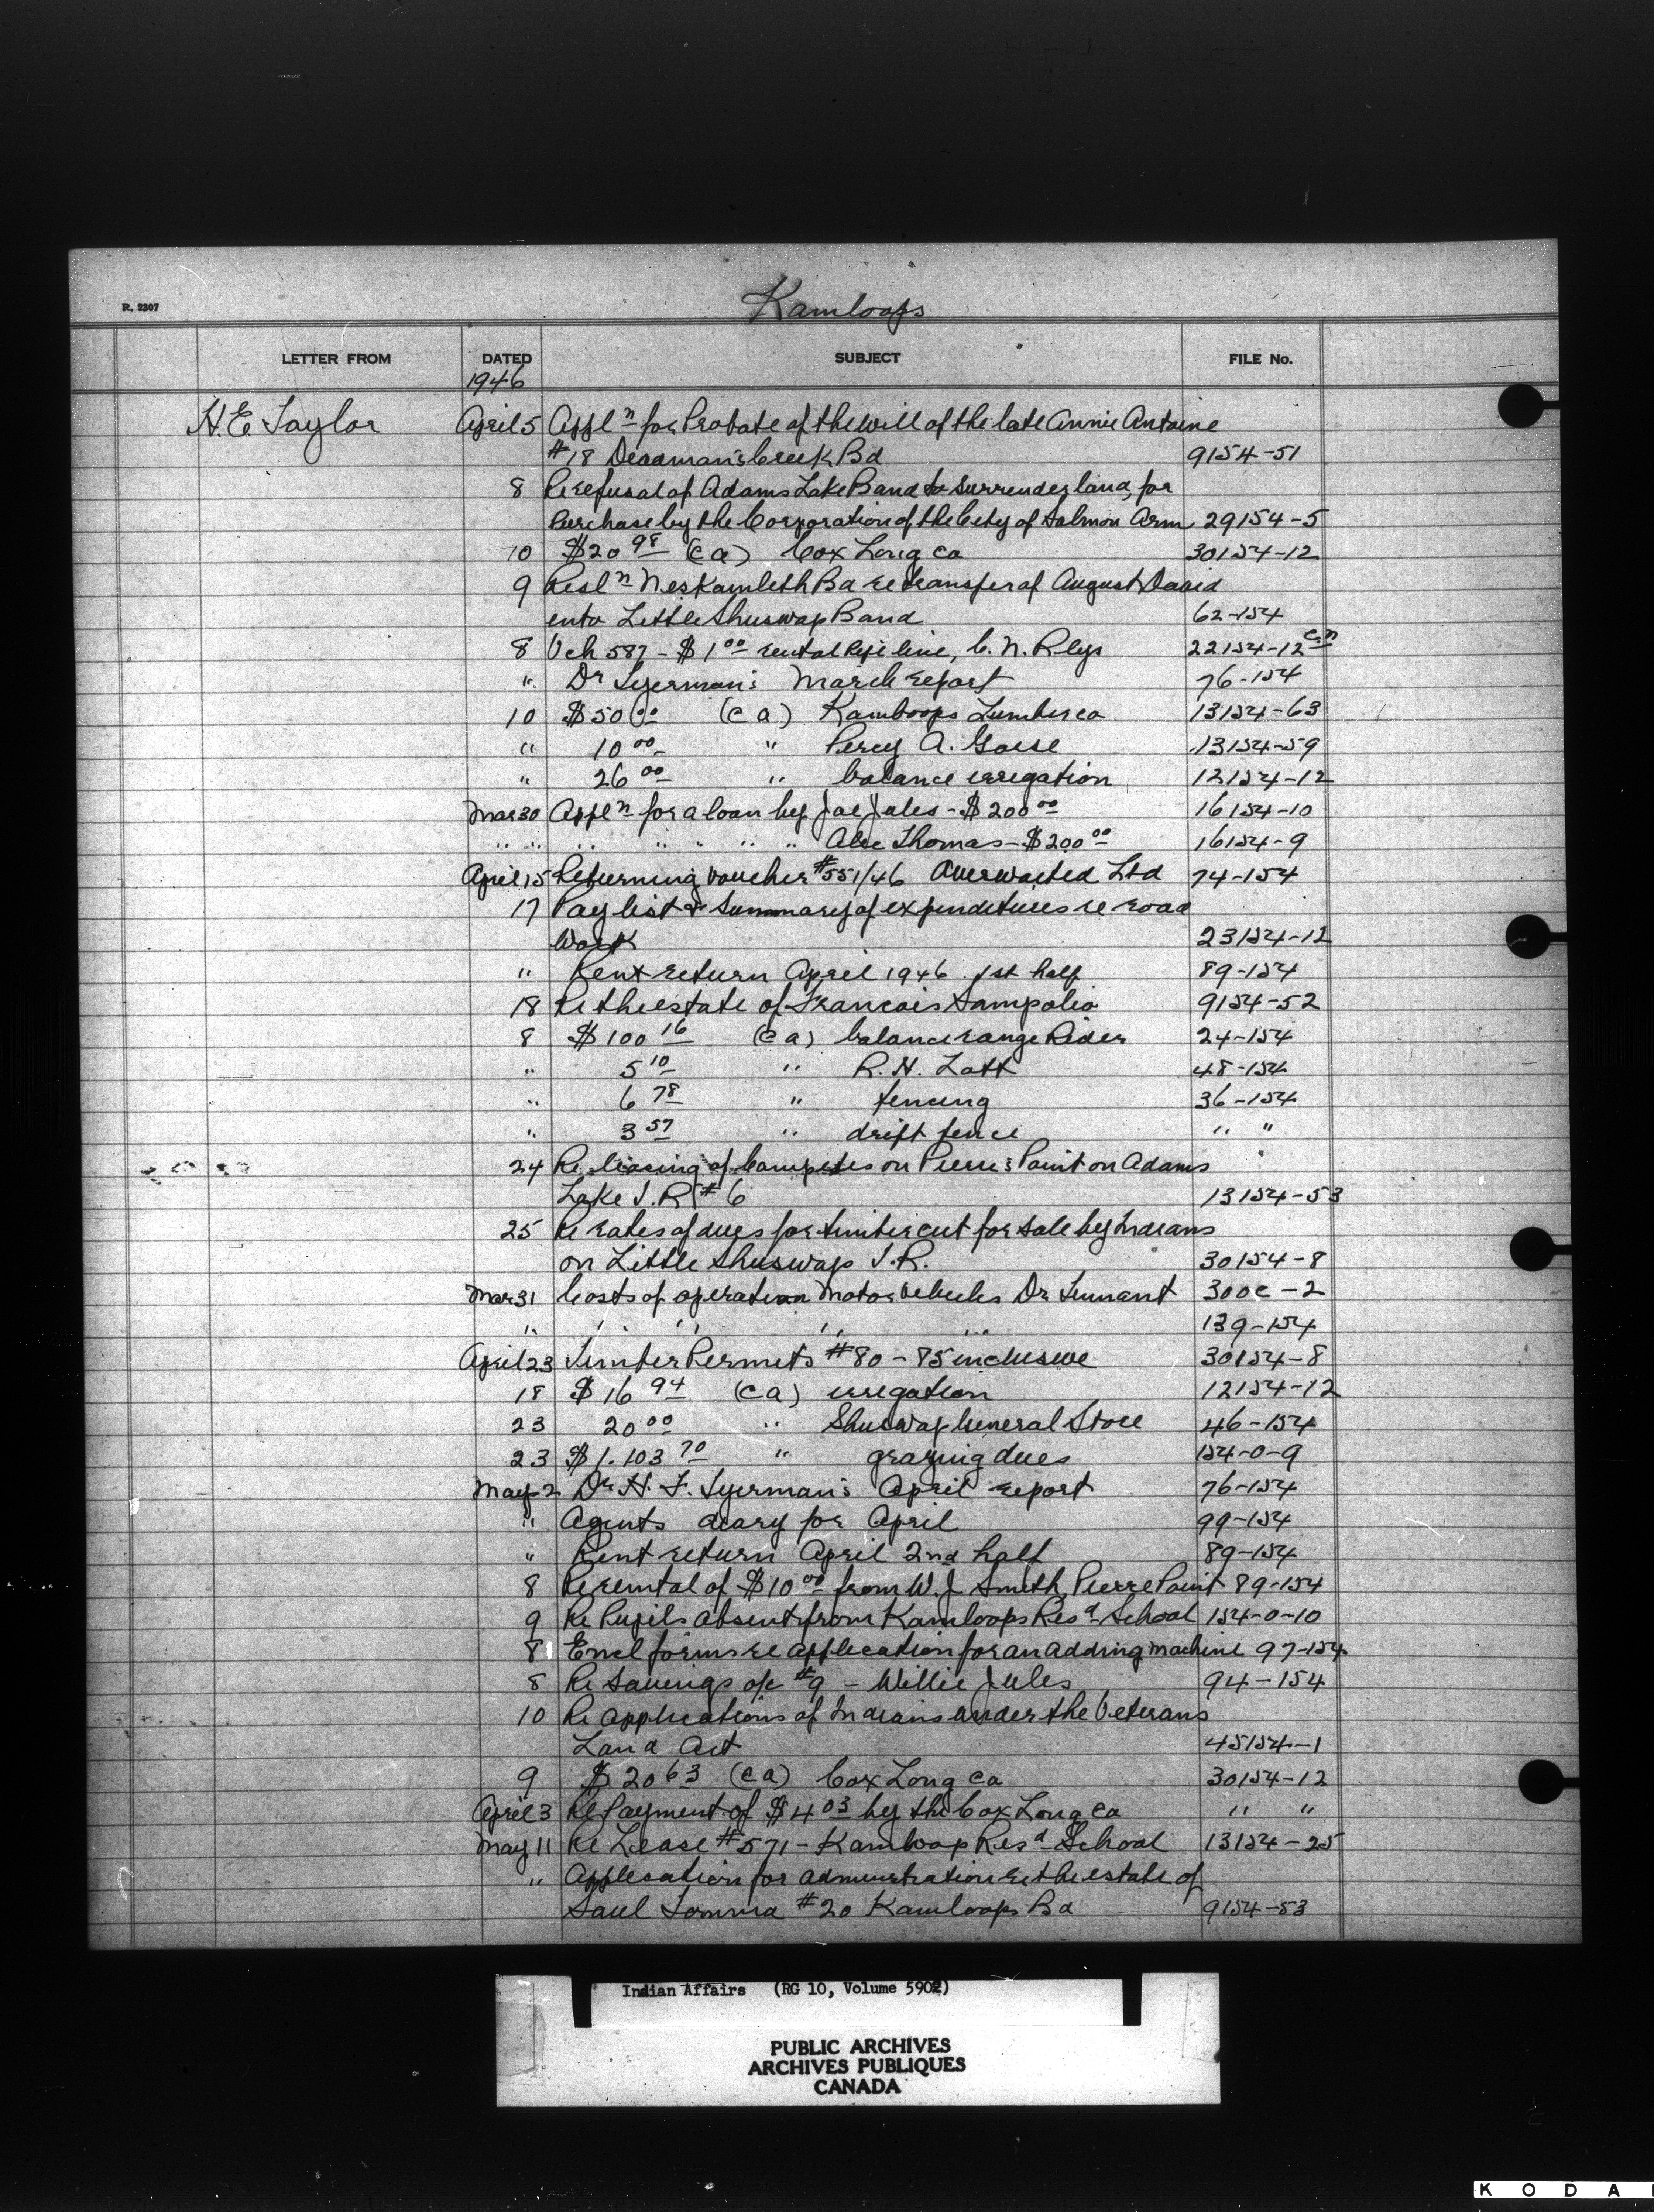 R. 2307
Kamloops
LETTER FROM DATED SUBJECT FILE No.
1946
H.E. Taylor April 5 Appl n for Probate of the will of the late Annie Antoine
#18 Deadman's Creek Bd 9154-51
8 Re refusal of Adams Lake Band to surrender land, for
Purchase by the Corporation of the City of Salmon Arm 29154-5
10 $20 98 (ca) Cox Long Co 30154-12
9 Resl n Neskamleth Bd re transfer of August David
into Little Shuswap Band 62-154
8 Vch 587 - $1 00 rental Pipe line, C. N. Rlys 22154-12 C.N
" Dr March report 76-154
10 $50 00 (ca) Kamloops Lumber Co 13154-63
" 10 00 " Percy A. 13154-59
" 26 00 " balance irrigation 12154-12
Mar 30 Appl n for a loan by Joe Jules - $200 00 16154-10
" " " " " " " Alec Thomas - $200 00 16154-9
April 15 Returning voucher #551/46 Overwaited Ltd 74-154
17 Pay list & Summary of expenditures re road
Work 23154-12
" Rent return April 1946 1st half 89-154
18 Re the estate of Francois Sampolio 9154-52
8 $100 16 (ca) balance range Rider 24-154
" 5 10 " R. H. Latt 48-154
" 6 78 " fencing 36-154
" 3 57 " drift fence " "
24 Re leasing of Campsites on Pierre's Point on Adams
Lake I.R # 6 13154-53
25 Re rates of dues for timber cut for sale by Indians
on Little Shuswap I.R. 30154-8
Mar 31 Costs of operation Motor Vehicles Dr Tennant 300c-2
" " " " " 139-154
April 23 Timber Permits #80 - 85 inclusive 30154-8
18 $16 94 (ca) irrigation 12154-12
23 20 00 " Shuswap General Store 46-154
23 $1.103 70 " grazing dues 154-0-9
May 2 Dr H. F. April report 76-154
" Agents diary for April 99-154
" Rent return April 2nd half 89-154
8 Re rental of $10 00 from W. J Smith, Pierre Point 89-154
9 Re Pupils absent from Kamloops Res d School 154-0-10
8 Encl forms re application for an adding machine 97-154
8 Re Savings a/c #9 - Willie Jules 94-154
10 Re applications of Indians under the Veterans
Land Act 45154-1
9 $20 63 (ca) Cox Long Co 30154-12
April 3 Re Payment of $4 03 by the Cox Long Co " "
May 11 Re Lease #571 - Kamloop Res d School 13154-25
" Application for administration re the estate of
Saul Tomma #20 Kamloops Bd 9154-53
Indian Affairs (RG 10, Volume 5902)
PUBLIC ARCHIVES
ARCHIVES PUBLIQUES
CANADA
KODA